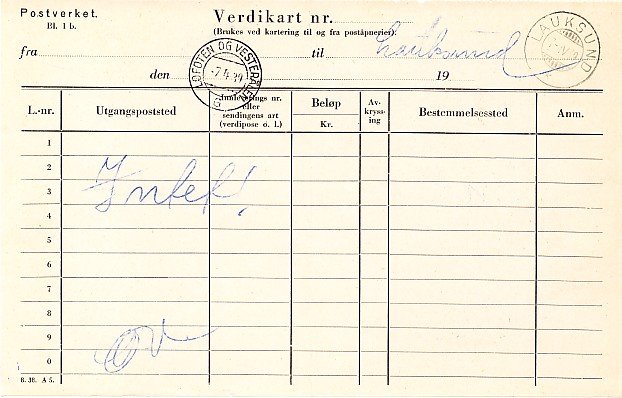 Postverket.
Bl. 1 b.
Verdikart nr.
(Brukes ved kartering til og fra poståpnerier):
fra til Lauksund
den 19
LAUKSUND
LOFOTEN OG VESTERÅLEN
-7.4.39
L.-nr. Utgangspoststed Innleverings nr. eller sendingens art (verdipose o. l.) Beløp Kr. Av-kryss-ing Bestemmelsessted Anm.
1
2
3 Intet!
4
5
6
7
8
9
0
8. 38. A 5.